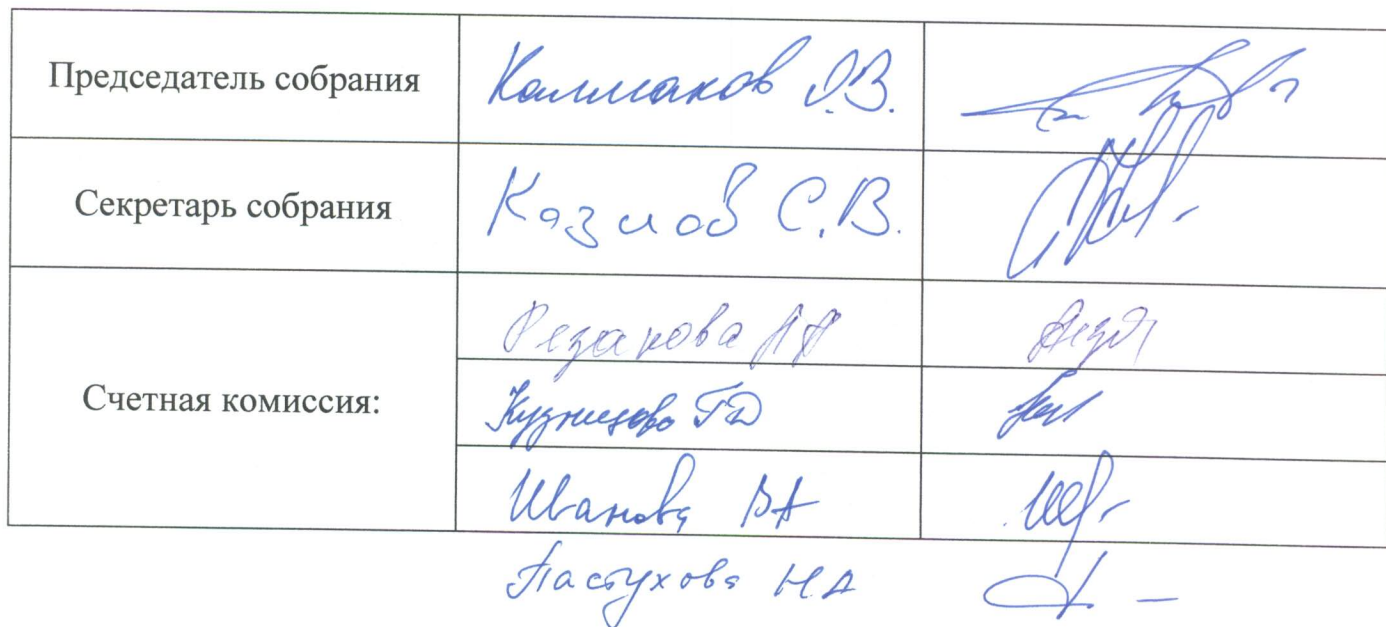 Председатель собрания Калмаков О.В.
Секретарь собрания Казлов С.В.
Резакова АА
Счетная комиссия: Кузнецова ГД
Иванова ВА
Пастухова Н.А